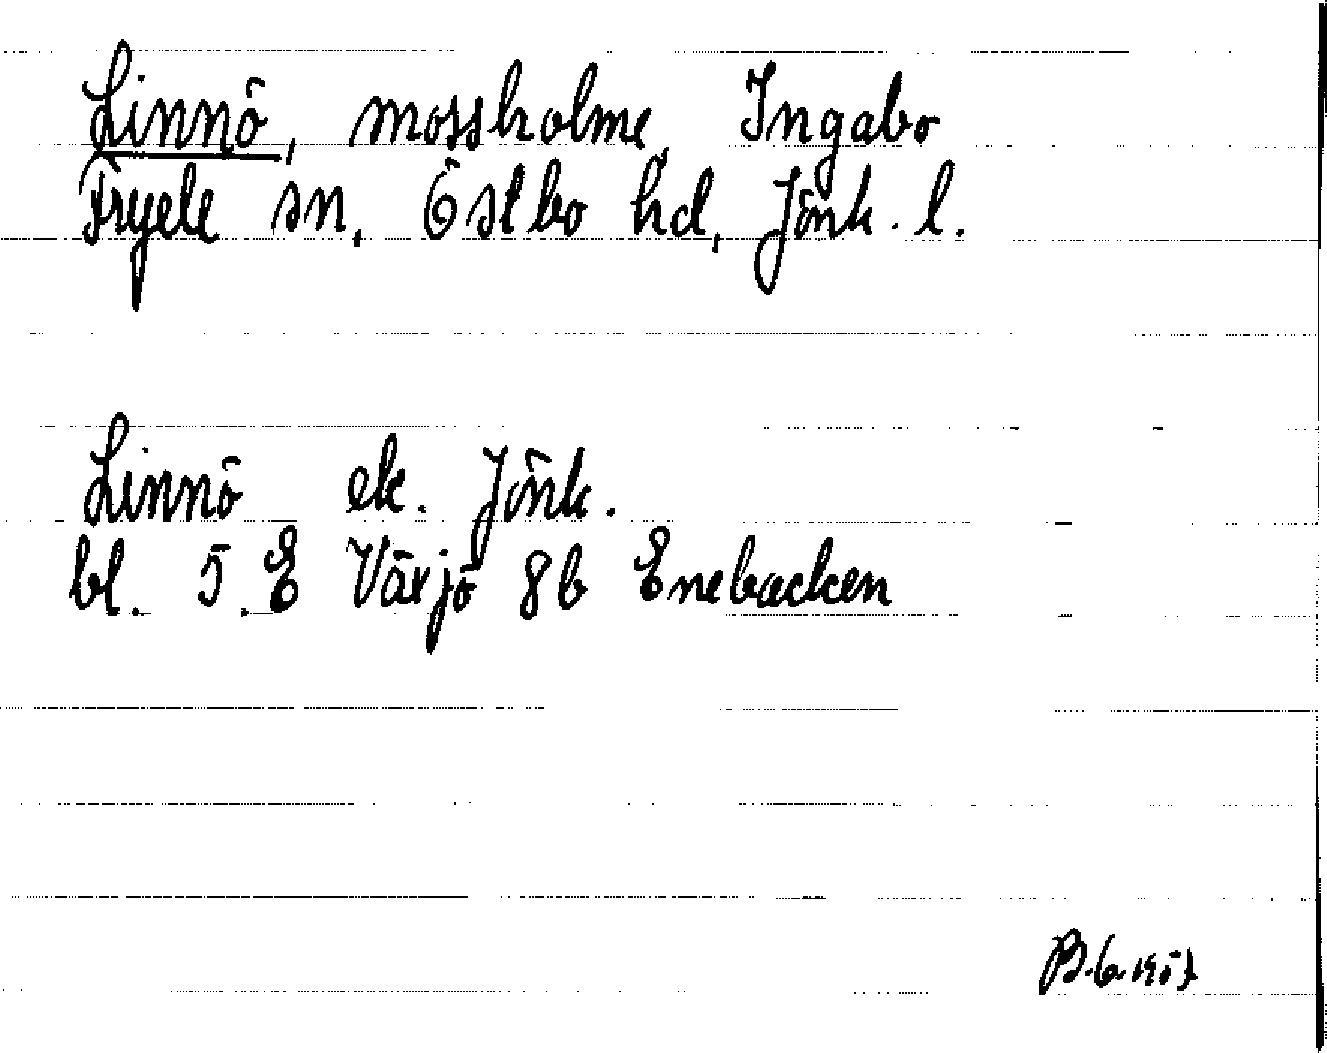 Linnö, mossholme, Ingabo
Fryele sn, Östbo hd, Jönk. l.
Linnö ek. Jönk.
bl. 5.E Växjö 8b Enebacken